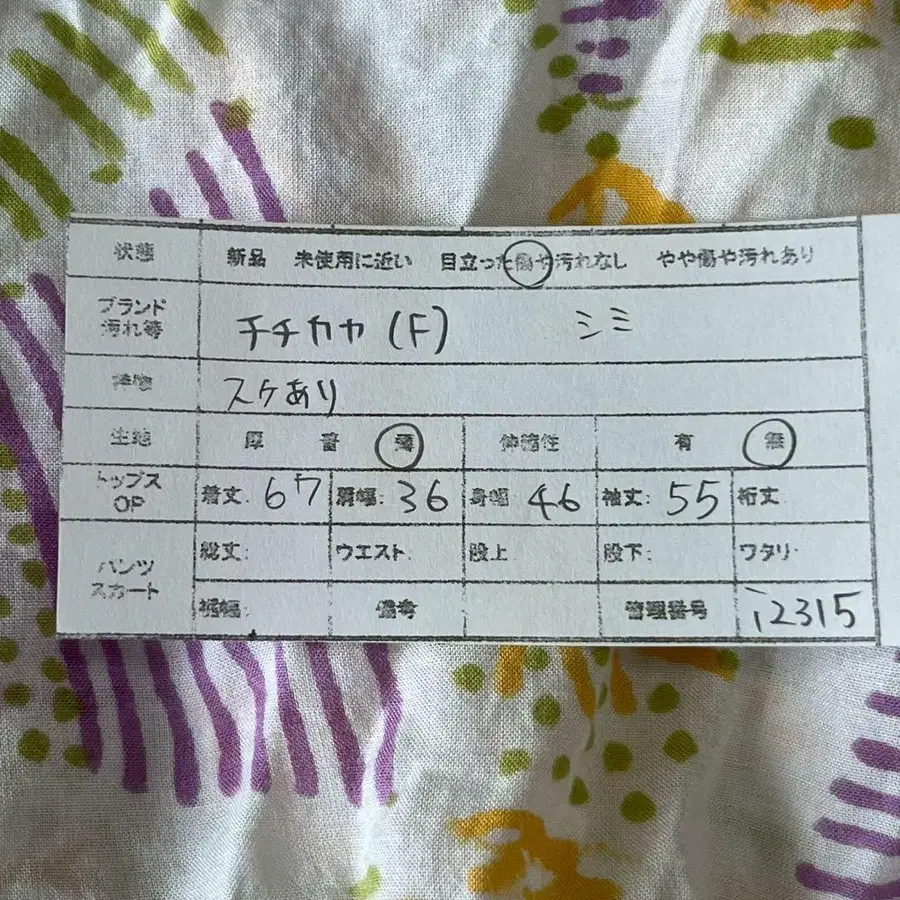 状態 新品 未使用に近い 目立った傷や汚れなし やや傷や汚れあり
ブランド
汚れ等 チチカカ (F) シミ
スケあり
生地 厚 普 薄 伸縮性 有 無
トップス
OP 着丈: 67 肩幅: 36 身幅: 46 袖丈: 55 裄丈
パンツ
スカート 総丈: ウエスト: 股上 股下: ワタリ
裾幅: 備考 管理番号 i2315